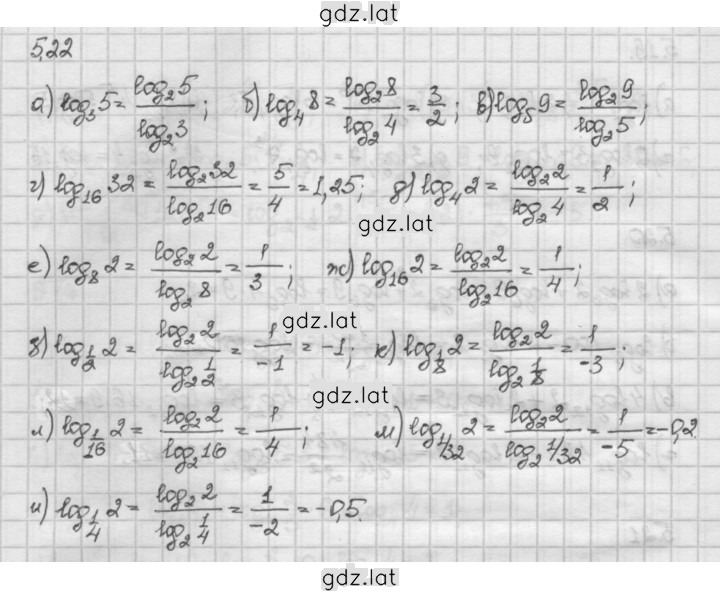 gdz.lat
5.22
а) log₃5 = log₂5/log₂3; б) log₄8 = log₂8/log₂4 = 3/2; в) log₅9 = log₂9/log₂5;
г) log₁₆32 = log₂32/log₂16 = 5/4 = 1,25; д) log₄2 = log₂2/log₂4 = 1/2;
gdz.lat
е) log₈2 = log₂2/log₂8 = 1/3; ж) log₁₆2 = log₂2/log₂16 = 1/4;
gdz.lat
з) log_{1/2}2 = log₂2/log₂(1/2) = 1/-1 = -1; к) log_{1/8}2 = log₂2/log₂(1/8) = 1/-3;
gdz.lat
л) log_{1/16}2 = log₂2/log₂16 = 1/4; м) log_{1/32}2 = log₂2/log₂1/32 = 1/-5 = -0,2.
н) log_{1/4}2 = log₂2/log₂(1/4) = 1/-2 = -0,5.
gdz.lat